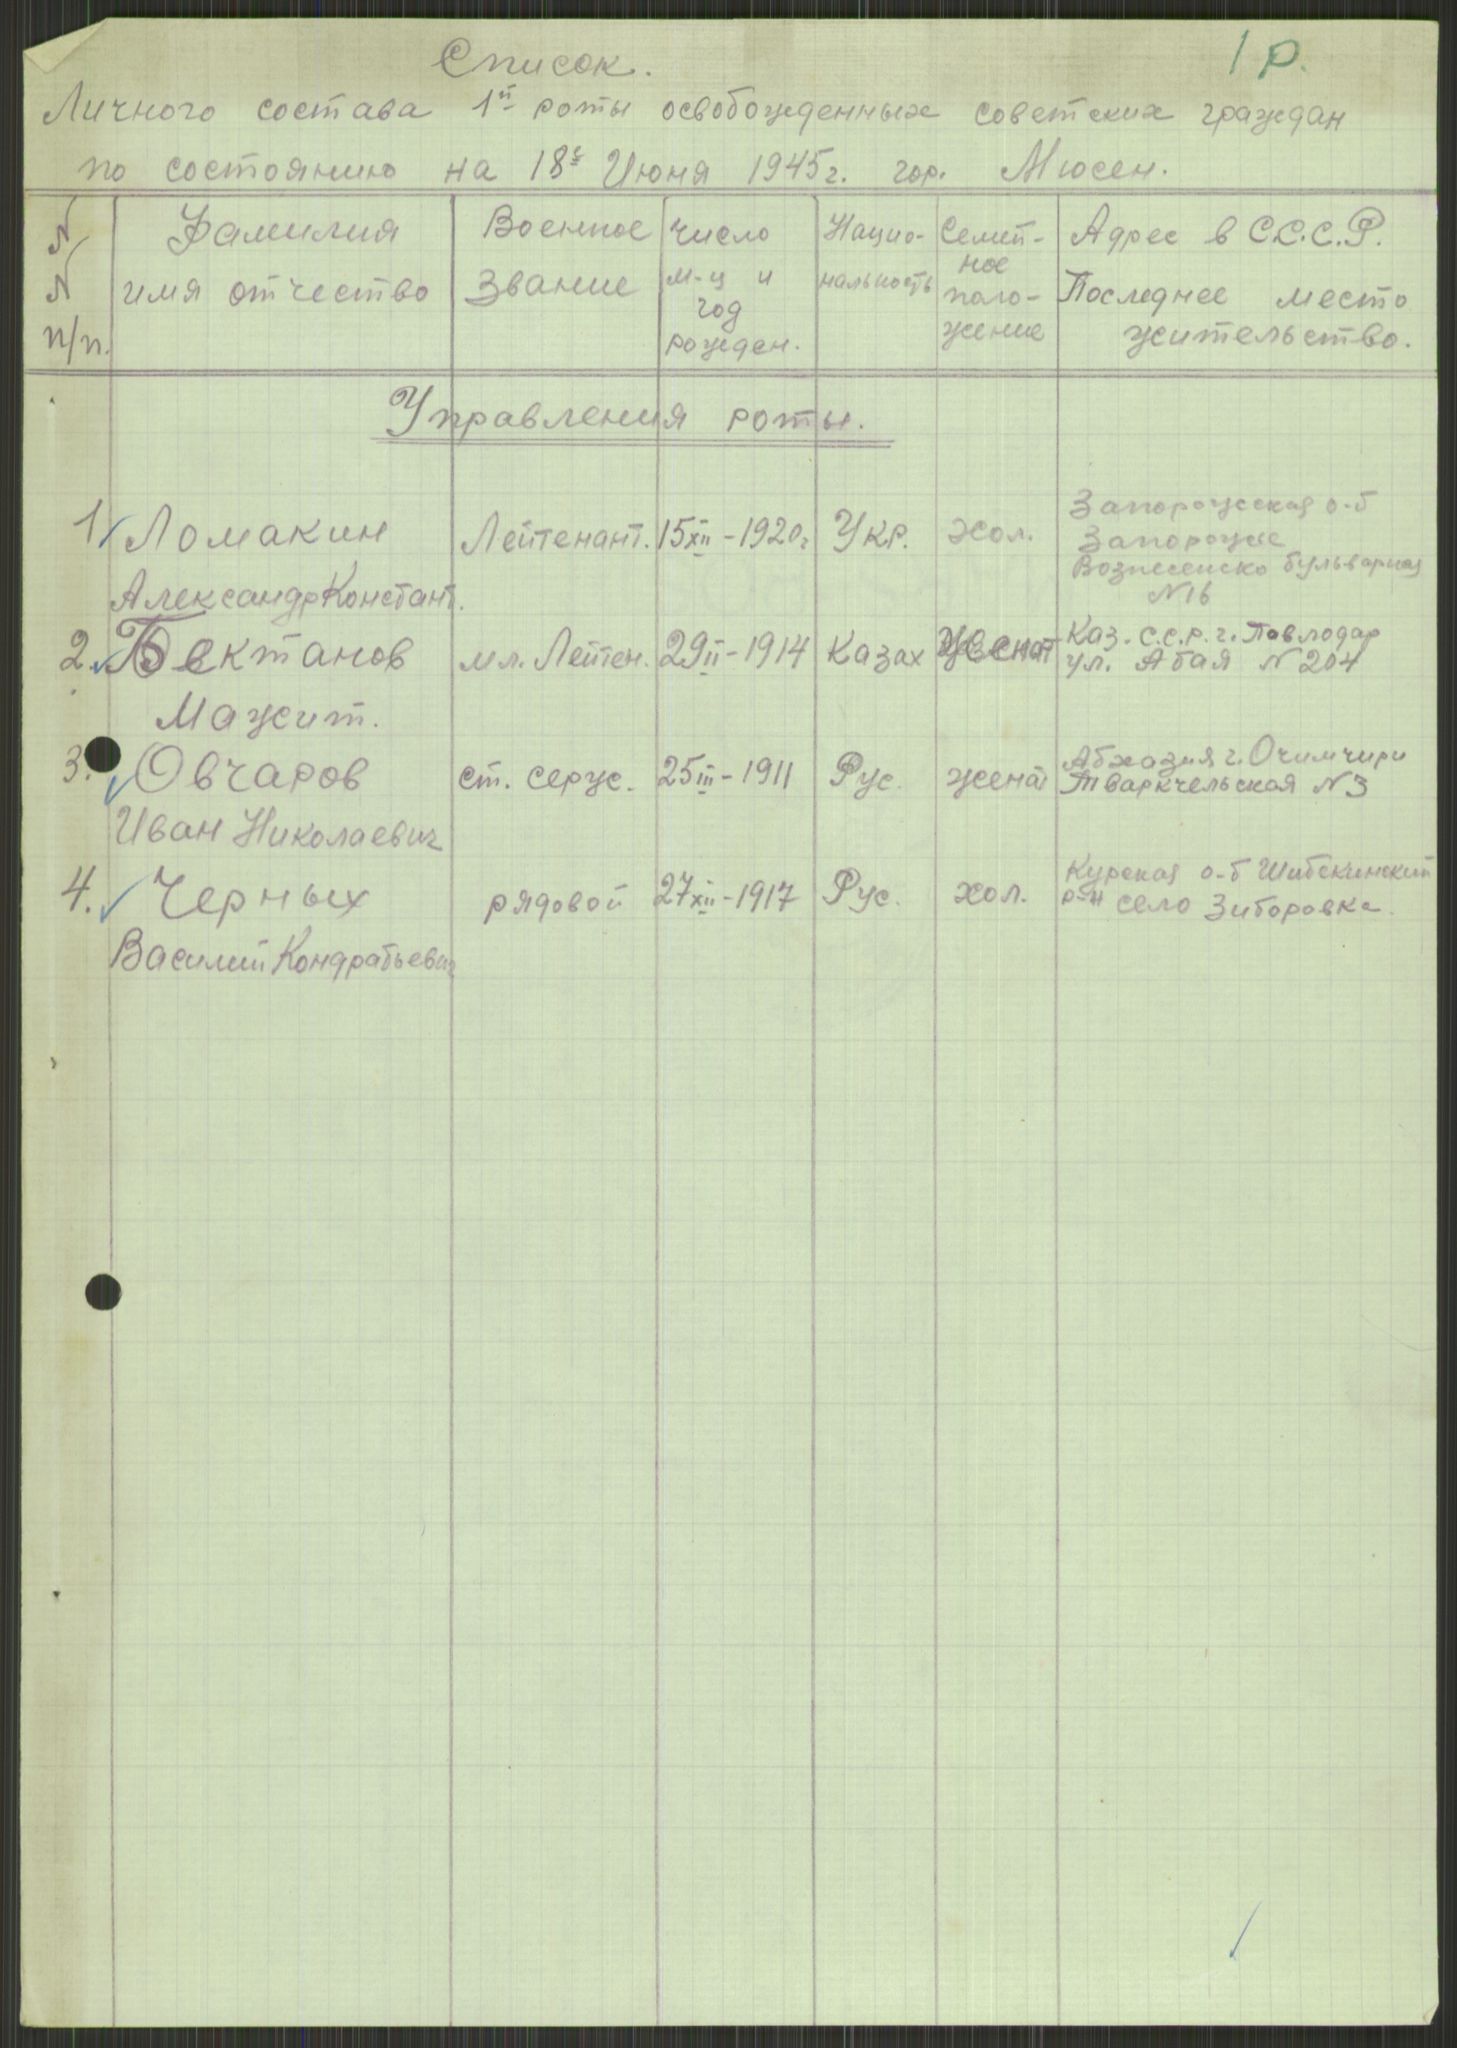 1 р.
Список.
Личного состава 1й роты освобожденных советских граждан
по состоянию на 18е Июня 1945г. гор. Мюсен.
N N п/п. | Фамилия имя отчество | Военное звание | Число м-ц и год рожден. | Нацио-нальность | Семей-ное поло-жение | Адрес в С.С.С.Р. Последнее место жительство.
Управления роты.
1 Ломакин Лейтенант. 15 XII – 1920г Укр. хол. Запорожская о-б
Запорожье
Вознесенско бульварная
N16
Александр Констант.
2. Бектанов мл. Лейтен. 29 II – 1914 Казах женат Каз. С.С.Р. г. Павлодар
ул. Абая N 204
Мажит.
3. Овчаров ст. серж. 25 III – 1911 Рус. женат Абхазия г. Очимчири
Тваркчельская N3
Иван Николаевич
4. Черных рядовой 27 XII – 1917 Рус. хол. Курская о-б Шибекинский
р-н село Зиборовка.
Василий Кондратьевич